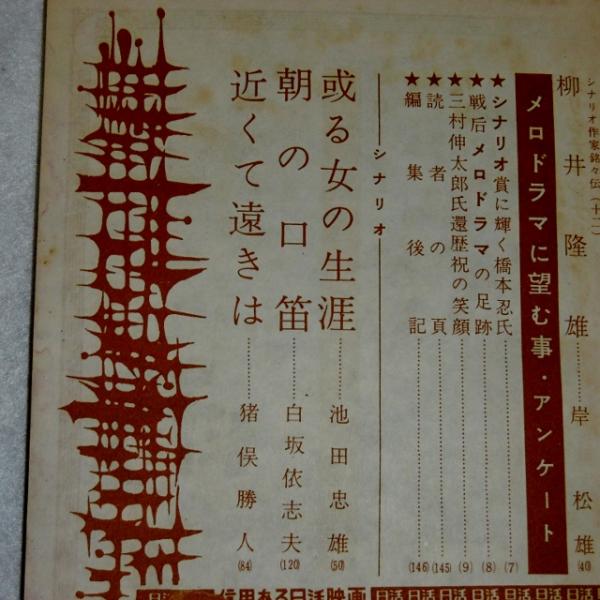 シナリオ作家銘々伝(十二)
柳井隆雄…………岸松雄(40)
メロドラマに望む事・アンケート
★シナリオ賞に輝く橋本忍氏…………(7)
★戦后メロドラマの足跡…………(8)
★三村伸太郎氏還歴祝の笑顔…………(9)
★読者の頁…………(145)
★編集後記…………(146)
シナリオ
或る女の生涯…………池田忠雄(50)
朝の口笛…………白坂依志夫(120)
近くて遠きは…………猪俣勝人(84)
信用ある日活映画 日活 日活 日活 日活 日活